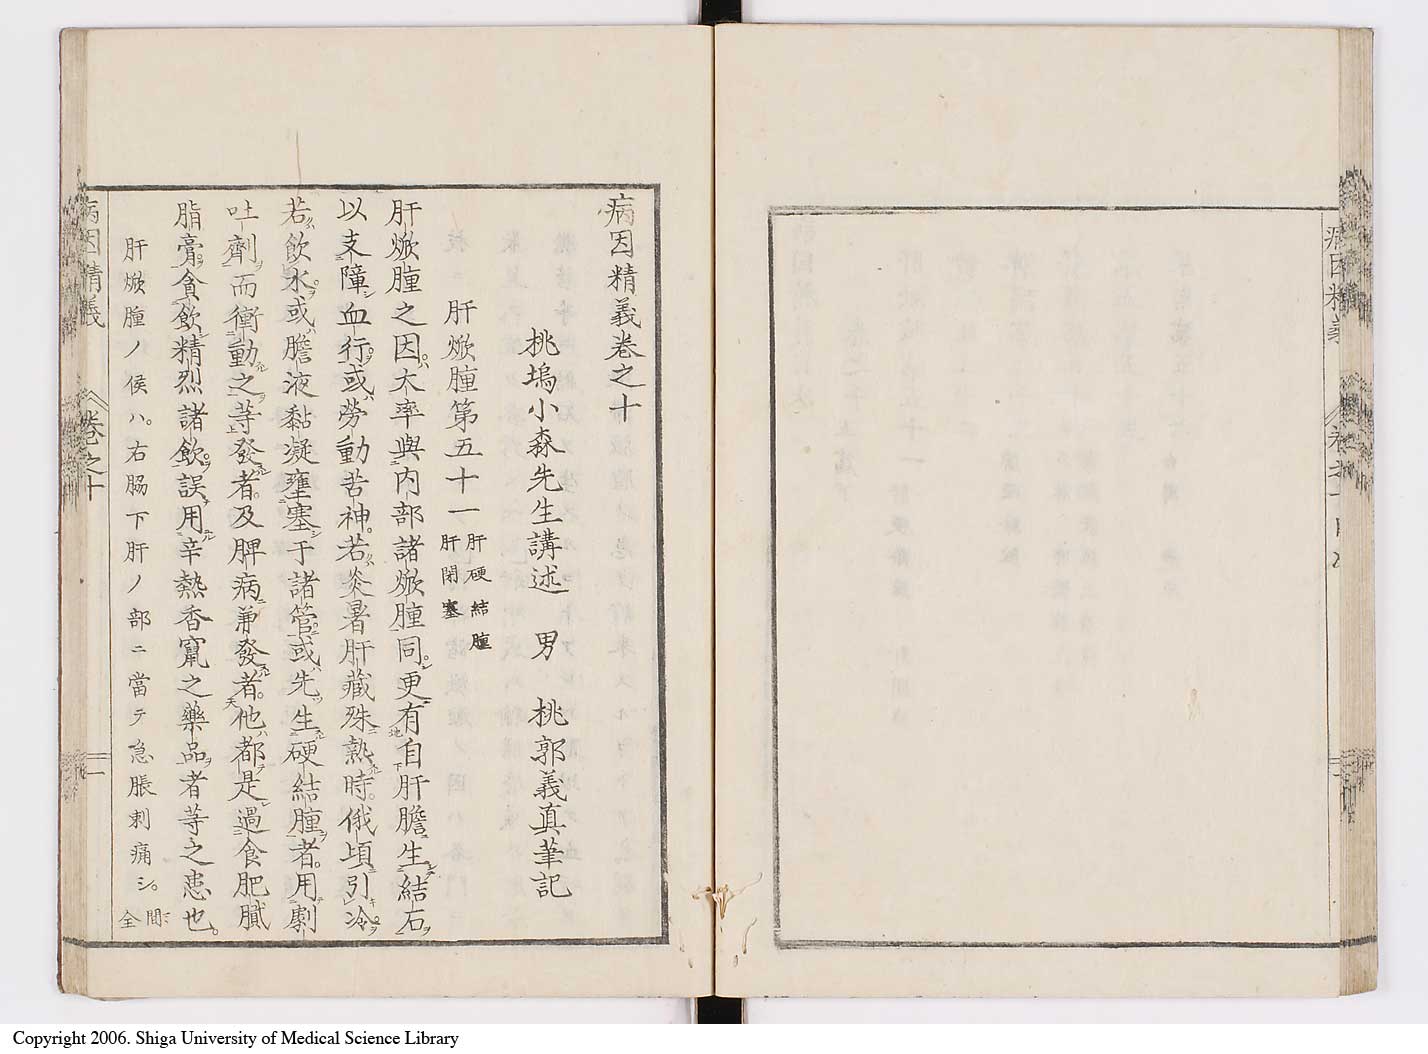 病因精義
病因精義卷之十
桃塢小森先生講述　男　桃郭義真筆記
肝焮腫第五十一　肝硬結腫　肝閉塞
肝焮腫之因大率與内部諸焮腫同更有自肝膽生結石
以支障血行或勞動苦神若炎暑肝藏殊熱時俄頃引冷
若飲水或膽液黏凝壅塞于諸管或先生硬結腫者用劇
吐劑而衝動之等發者及脾病兼發者他都是過食肥膩
脂膏貪飲精烈諸飲誤用辛熱香竄之藥品者等之患也
肝焮腫ノ候ハ右脇下肝ノ部ニ當テ急脹刺痛シ間全
病因精義　卷之十　一
Copyright 2006. Shiga University of Medical Science Library